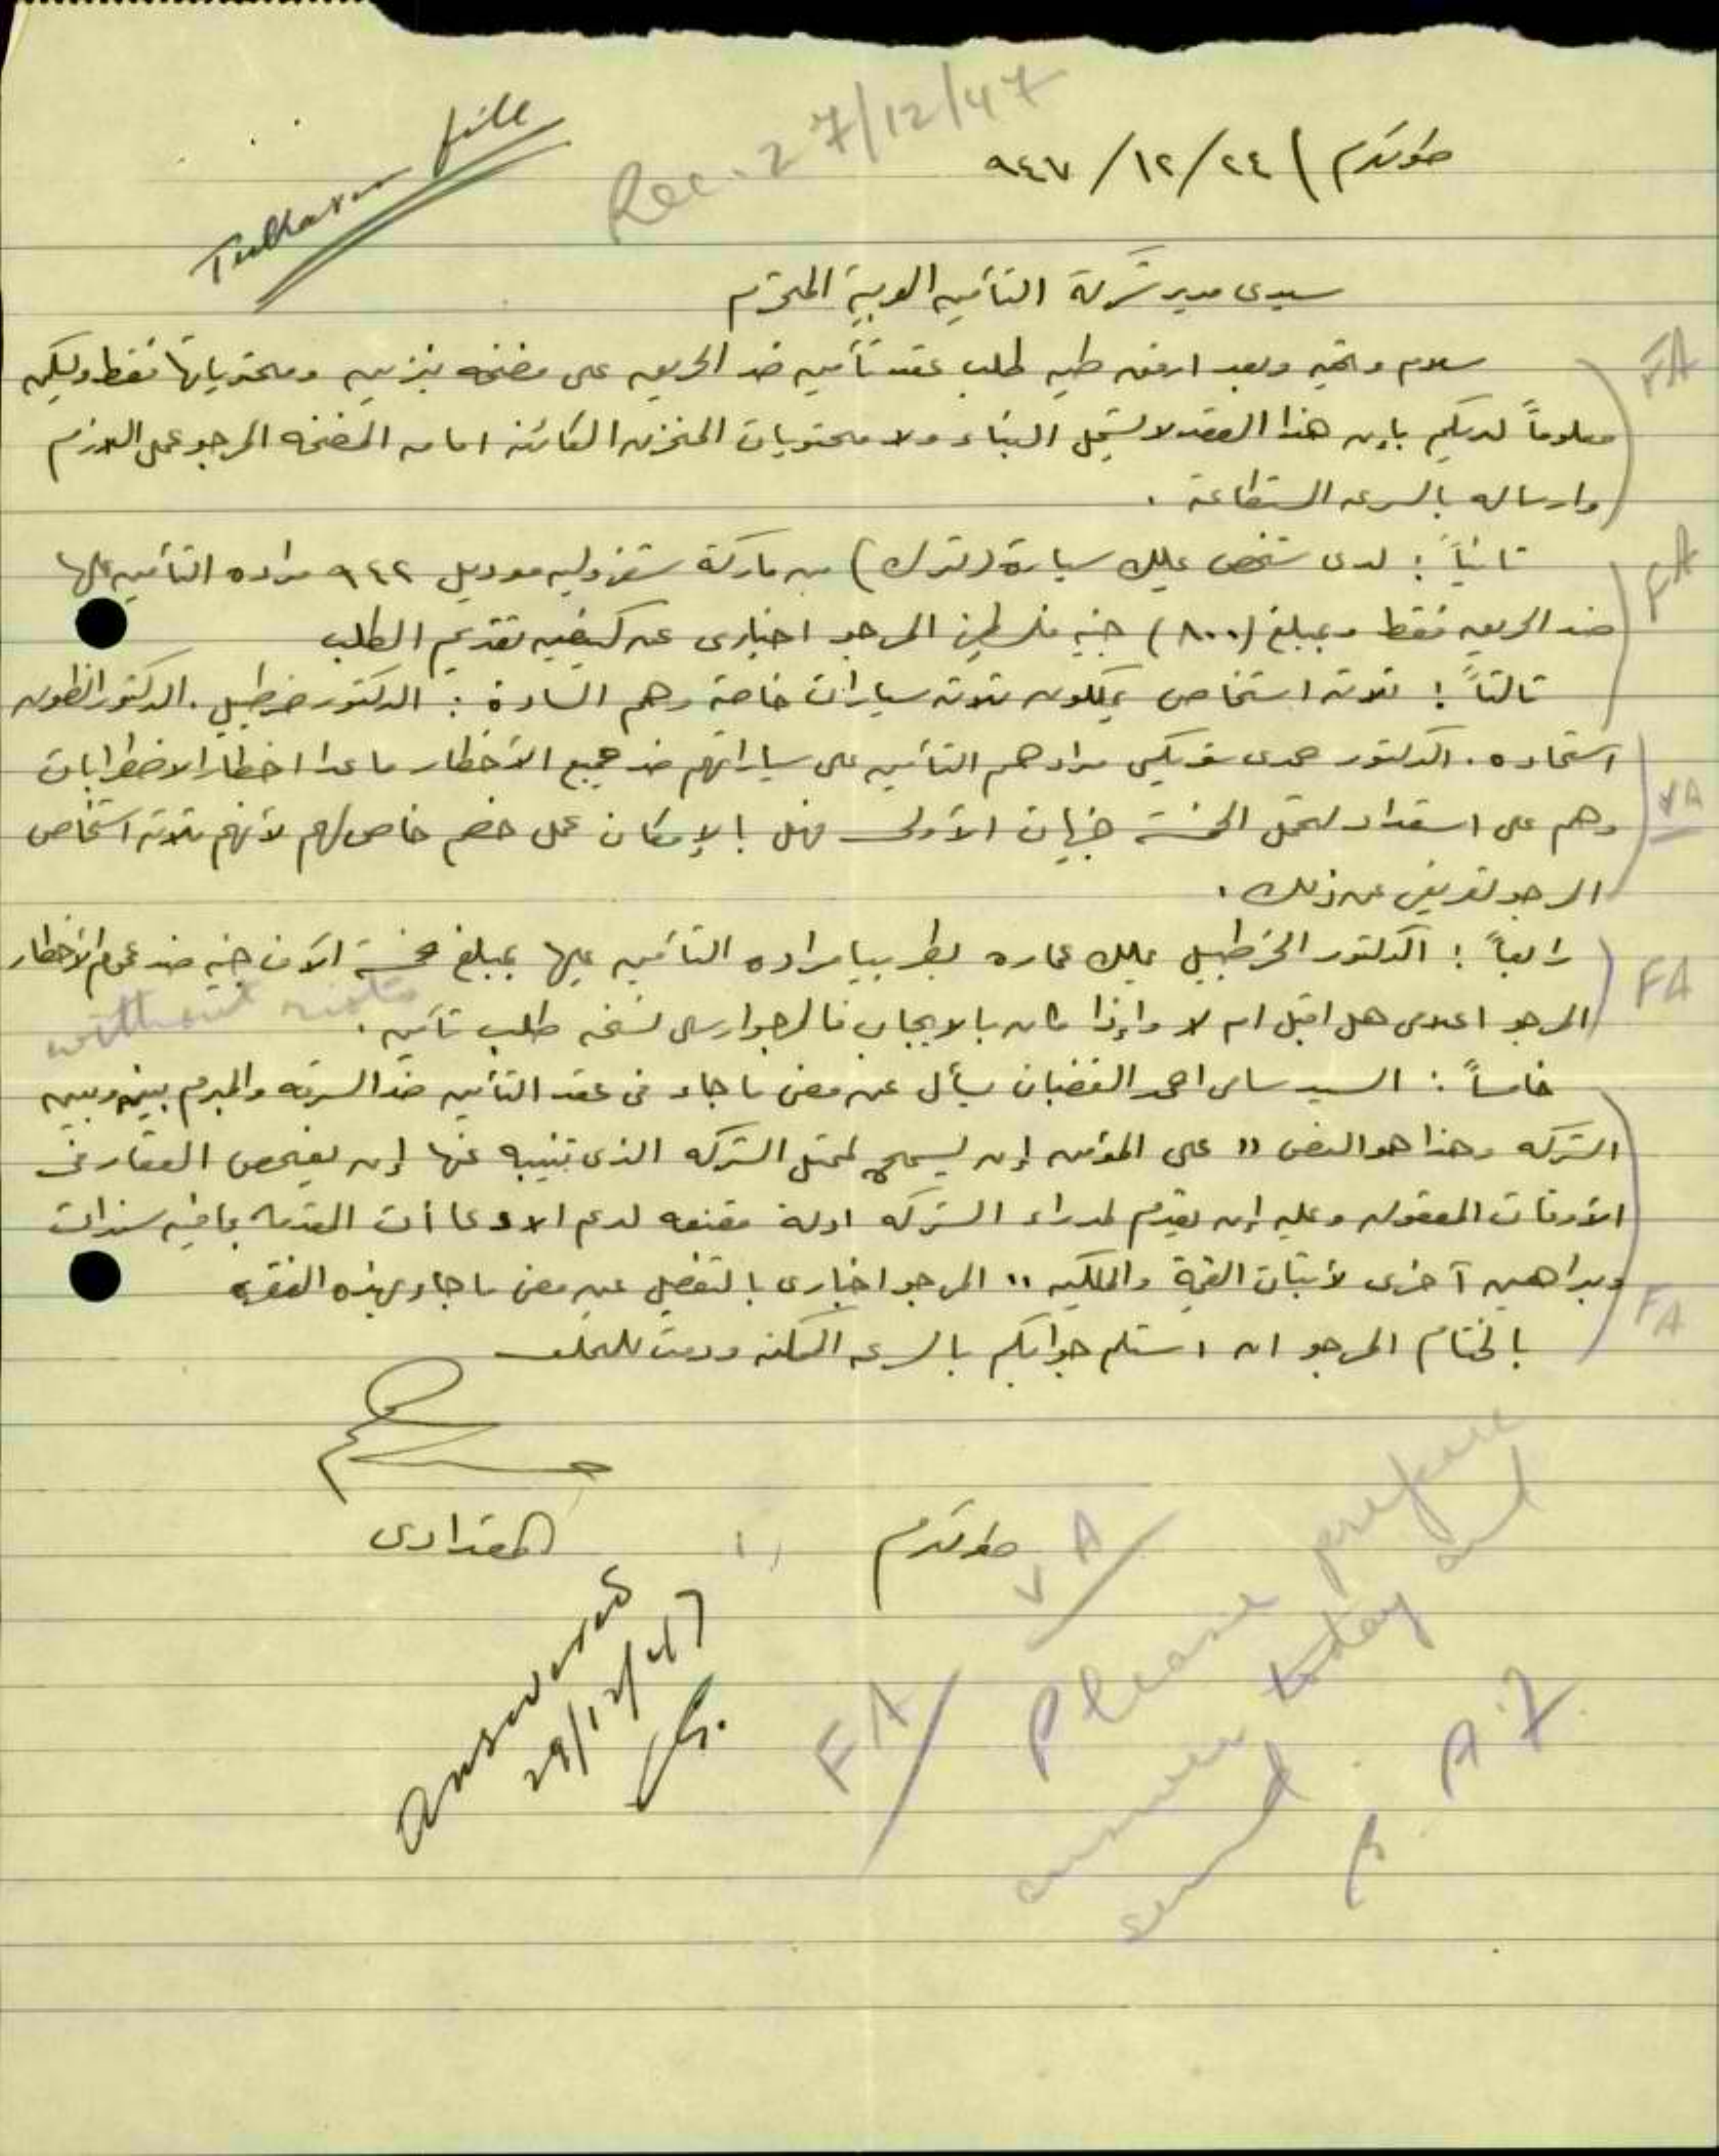 Tulkarem file
Rec. 27/12/47
طولكرم / ٢٤/ ١٢/ ٩٤٧
سيدى مدير شركة التأمين العربية المحترم
سلام وتحية وبعد ارفق طيه طلب عقد تأمين ضد الحريق على مضخه بنزين ومحتوياتها فقط وليكن
معلوماً لديكم بإن هذا العقد لا يشمل البناء ولا محتويات المخزن الكائنة امام المضخه المرجو عمل اللازم
وارساله بالسرعه المستطاعة .
ثانياً : لدى شخص يملك سيارة (ترك) من ماركة شفروليه موديل ٩٤٢ مراده التأمين عليها
ضد الحريق فقط وبمبلغ (٨٠٠) جنيه فلسطينى المرجو اخبارى عن كيفيه تقديم الطلب
ثالثاً : ثلاثه اشخاص يملكون ثلاثه سيارات خاصة وهم السادة : الدكتور خرطبيل . الدكتور انطون
اسحاده . الدكتور حمدى مرادهم التأمين على سياراتهم ضد جميع الأخطار ما عدا اخطار الاضطرابات
وهم على استعداد لتحمل الخمسة جنيهات الأولى فهل بالإمكان عمل خصم خاص لهم لأنهم ثلاثه اشخاص
المرجو تعريفى عن ذلك .
رابعاً : الدكتور الخرطبيل يملك عماره مراده التأمين عليها بمبلغ خمسة آلاف جنيه ضد عموم الأخطار
without riots
المرجو اعلامى هل اقبل ام لا وإذا كان بالايجاب فالرجو ارسال نسخه طلب تأمين .
خامساً : السيد سامى احمد الغضبان يسأل عن معنى ما جاء فى عقد التأمين ضد السرقه والمبرم بينه وبين
الشركه وهذا هو النص " على المؤمن إن يسمح لممثل الشركه الذى تنيبه عنها إن يفحص العقار فى
الأوقات المعقوله وعليه إن يقدم لمدراء الشركه ادلة مقنعه لدعم الادعاأت المقدمه بما فيه سندات
وبراهين آخرى لأثبات القيمة والملكيه " المرجو اخبارى بالتفصيل عن معنى ما جاء بهذه الفقره
بالختام المرجو ان استلم جوابكم بالسرعه الممكنه ودمت للمخلص
المقدادى
طولكرم
FA
FA
VA
FA
FA
VA
FA
Please prepare
answer today and
send
A.Z.
answered
29/12/47